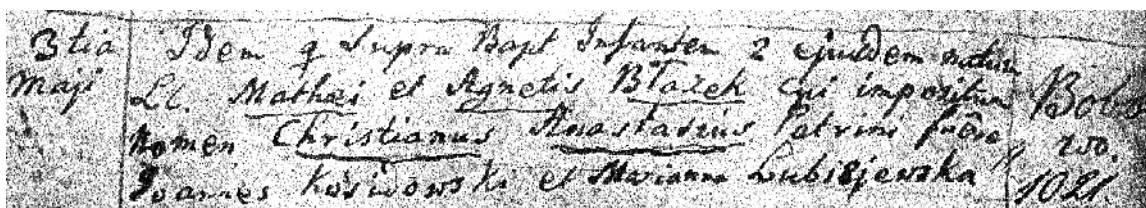 3tia Idem q Supra Bapt Infantem 2 ejusdem natum
Maji LL. Mathaei et Agnetis Błazek cui impositum
Nomen Christianus Anastasius Patrini fuere
Joannes Kosidowski et Marianna Lubiszewska
1021.